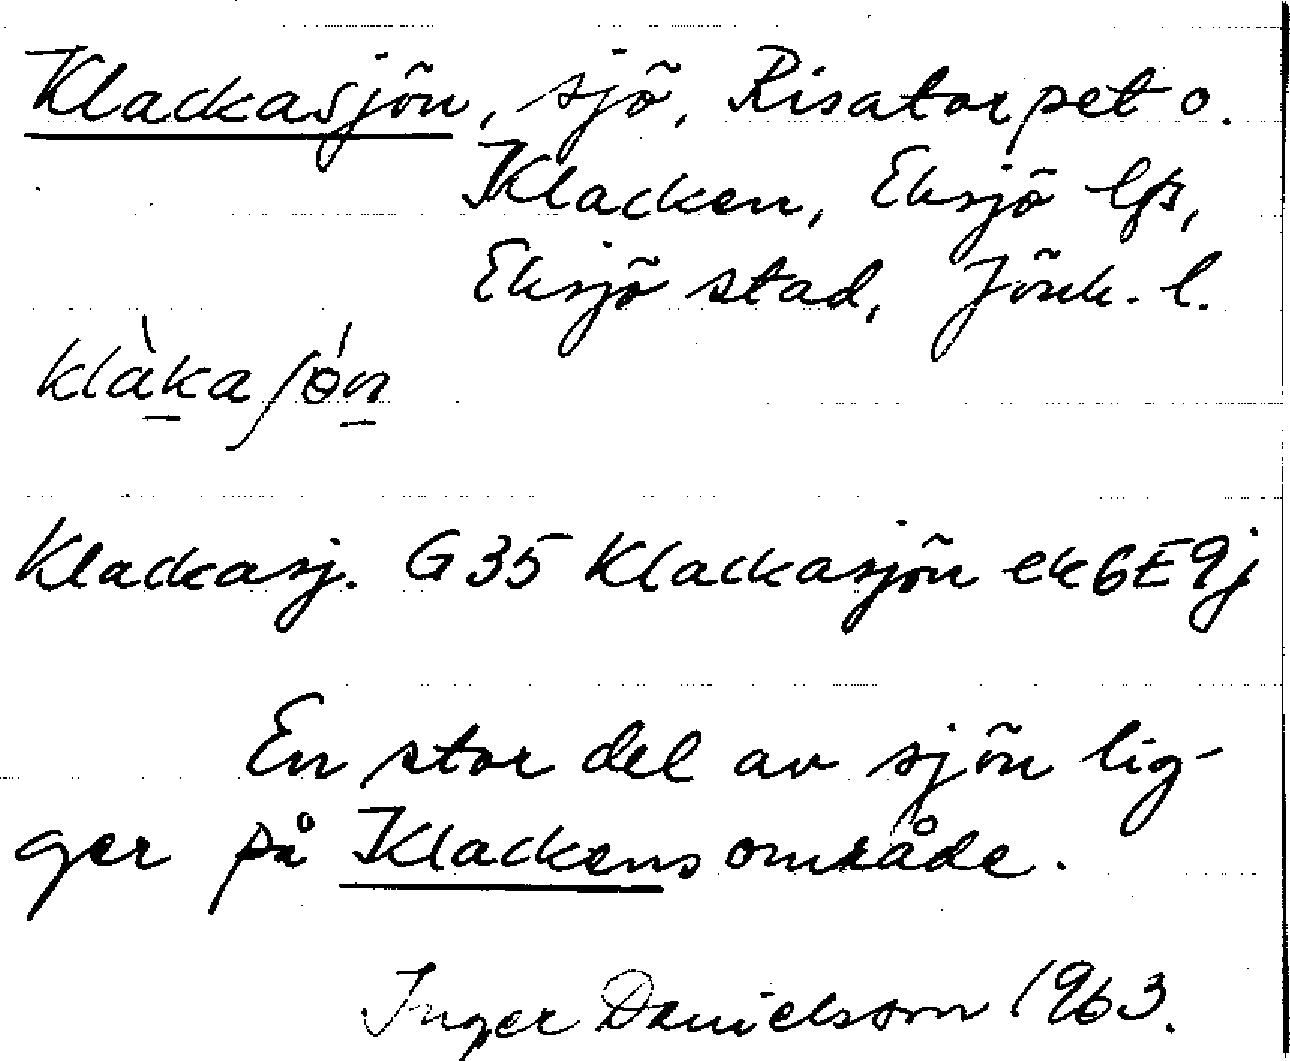 Klackasjön, sjö, Risatorpet o.
Klacken, Eksjö lfs,
Eksjö stad, Jönk. l.
klàka ʃɵ́n
Klackasj. G35 Klackasjön ek6E9j
En stor del av sjön lig-
ger på Klackens område.
Inger Danielsson 1963.